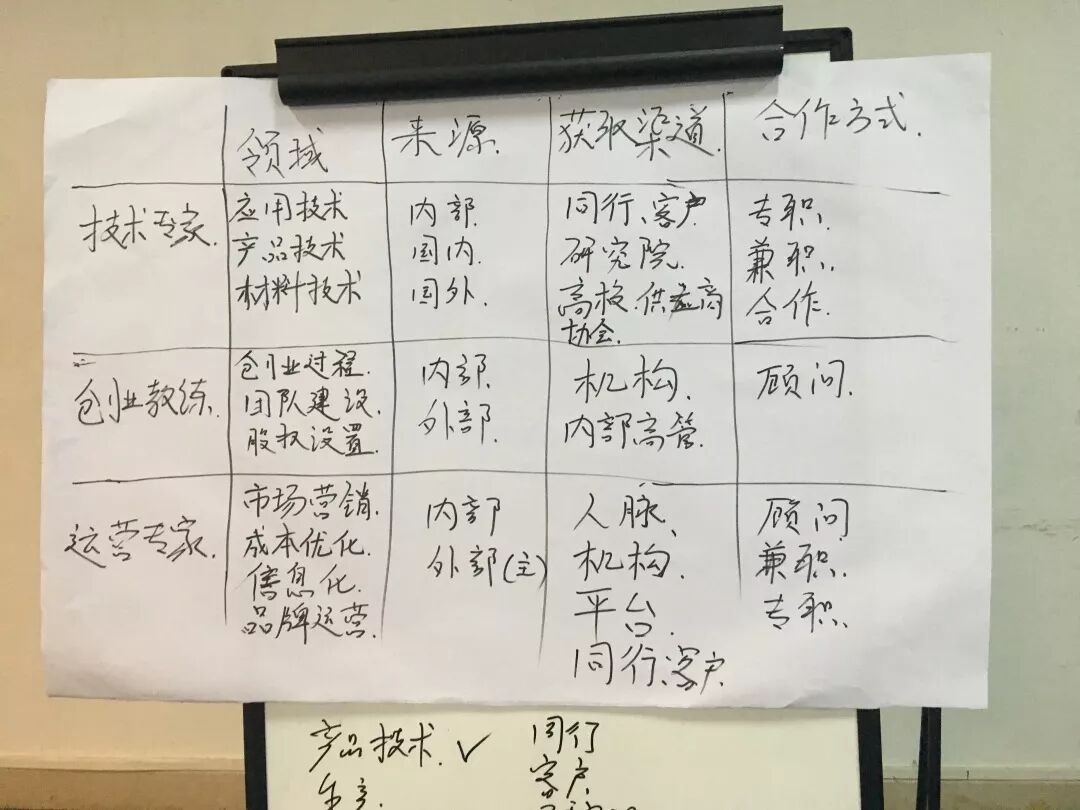 领域 来源. 获取渠道. 合作方式.
技术专家. 应用技术 内部. 同行、客户 专职.
产品技术 国内. 研究院. 兼职.
材料技术 国外. 高校.供应商 合作.
协会.
创业教练. 创业过程. 内部. 机构. 顾问.
团队建设. 外部. 内部高管.
股权设置.
运营专家. 市场营销. 内部 人脉、 顾问
成本优化. 外部(主) 机构. 兼职.
信息化. 平台. 专职.
品牌运营. 同行、客户.
产品技术.✓ 同行
客户.